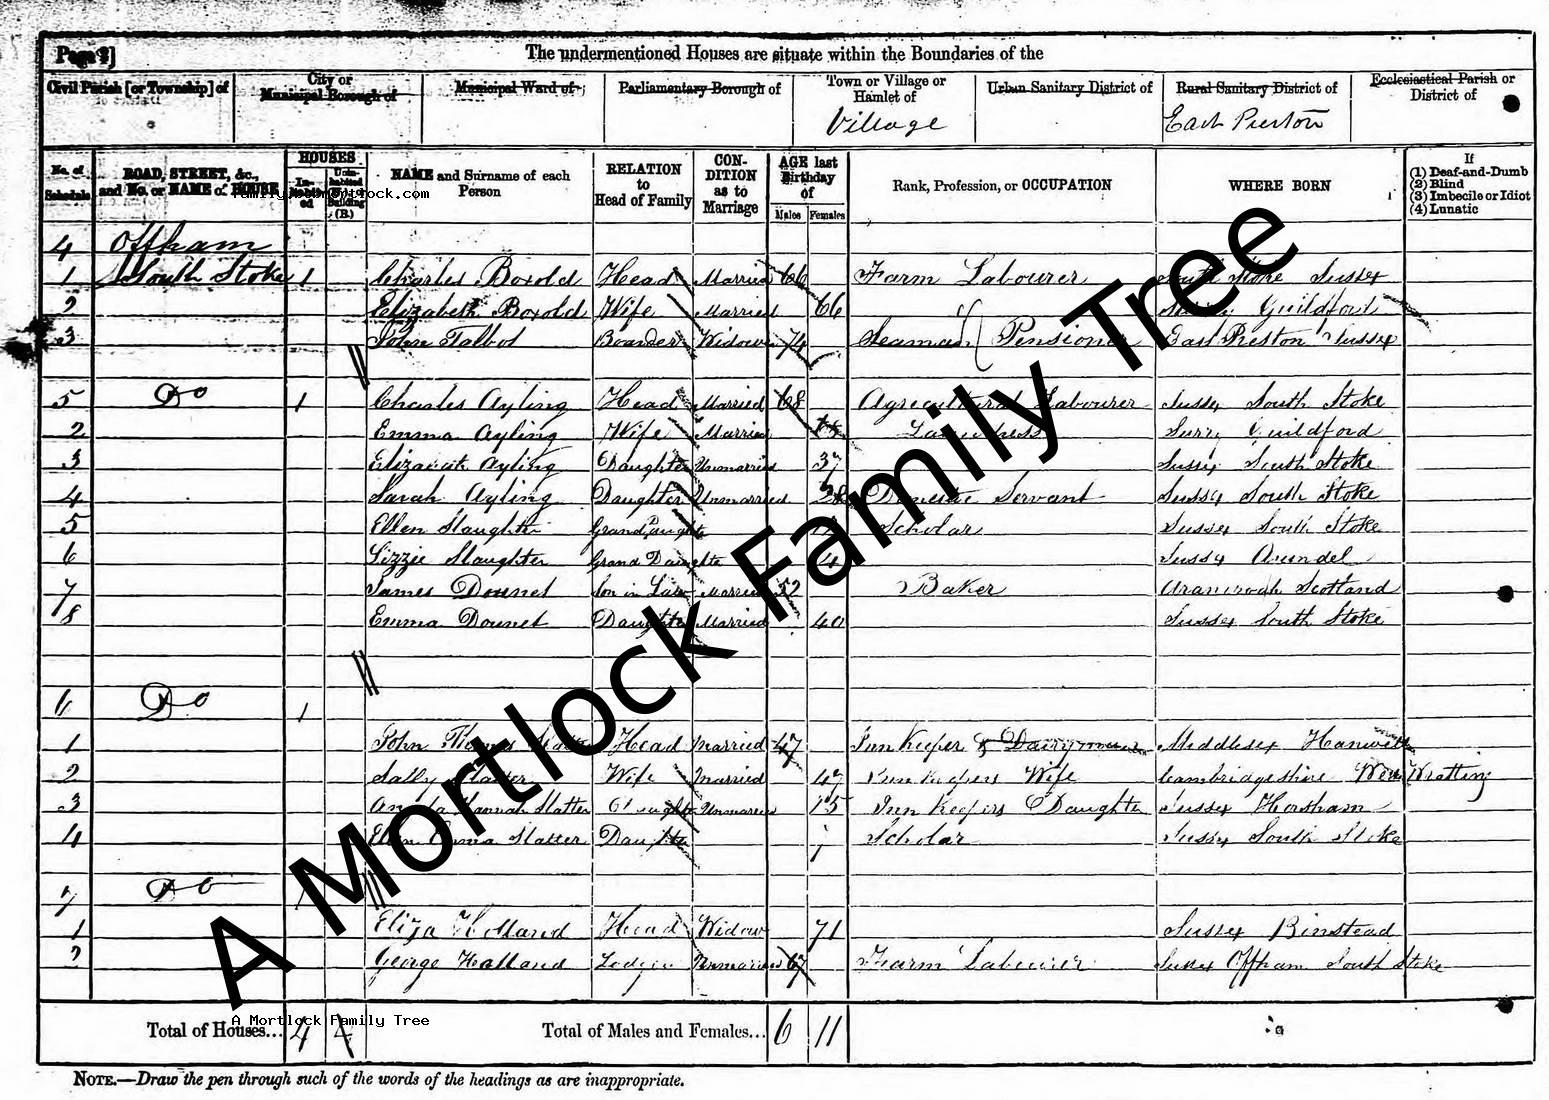 Page 3]
The undermentioned Houses are situate within the Boundaries of the
Civil Parish [or Township] of
City or Municipal Borough of
Municipal Ward of
Parliamentary Borough of
Town or Village or Hamlet of
Village
Urban Sanitary District of
Rural Sanitary District of
East Preston
Ecclesiastical Parish or District of
No. of Schedule
ROAD, STREET, &c., and No. or NAME of HOUSE
HOUSES
In-habited
Unin-habited
Building (B.)
NAME and Surname of each Person
RELATION to Head of Family
CON-DITION as to Marriage
AGE last Birthday of
Males Females
Rank, Profession, or OCCUPATION
WHERE BORN
If
(1) Deaf-and-Dumb
(2) Blind
(3) Imbecile or Idiot
(4) Lunatic
4 Offham
1 South Stoke 1 Charles Boxold Head Married 66 Farm Labourer South Stoke Sussex
2 Elizabeth Boxold Wife Married 66 Guildford
3 John Talbot Boarder Widower 74 Seaman Pensioner East Preston Sussex
5 Do 1 Charles Ayling Head Married 68 Agricultural Labourer Sussex South Stoke
2 Emma Ayling Wife Married Laundress Surry Guildford
3 Elizabeth Ayling Daughter Unmarried 37 Sussex South Stoke
4 Sarah Ayling Daughter Unmarried 28 Domestic Servant Sussex South Stoke
5 Ellen Slaughter Grand Daughter Scholar Sussex South Stoke
6 Lizzie Slaughter Grand Daughter 4 Sussex Arundel
7 James Dounet Son in Law Married 52 Baker Scotland
8 Emma Dounet Daughter Married 40 Sussex South Stoke
6 Do 1
1 John Thomas Slatter Head Married 47 Inn Keeper & Dairyman Middlesex Hanwell
2 Sally Slatter Wife Married 47 Inn Keepers Wife Cambridgeshire West Wratting
3 Hannah Slatter Daughter Unmarried 15 Inn Keepers Daughter Sussex Horsham
4 Ellen Emma Slatter Daughter 7 Scholar Sussex South Stoke
7 Do 1
1 Eliza Holland Head Widow 71 Sussex Binstead
2 George Holland Lodger Unmarried 67 Farm Labourer Sussex Offham South Stoke
Total of Houses... 4 4
Total of Males and Females... 6 11
NOTE.—Draw the pen through such of the words of the headings as are inappropriate.
A Mortlock Family Tree
A Mortlock Family Tree